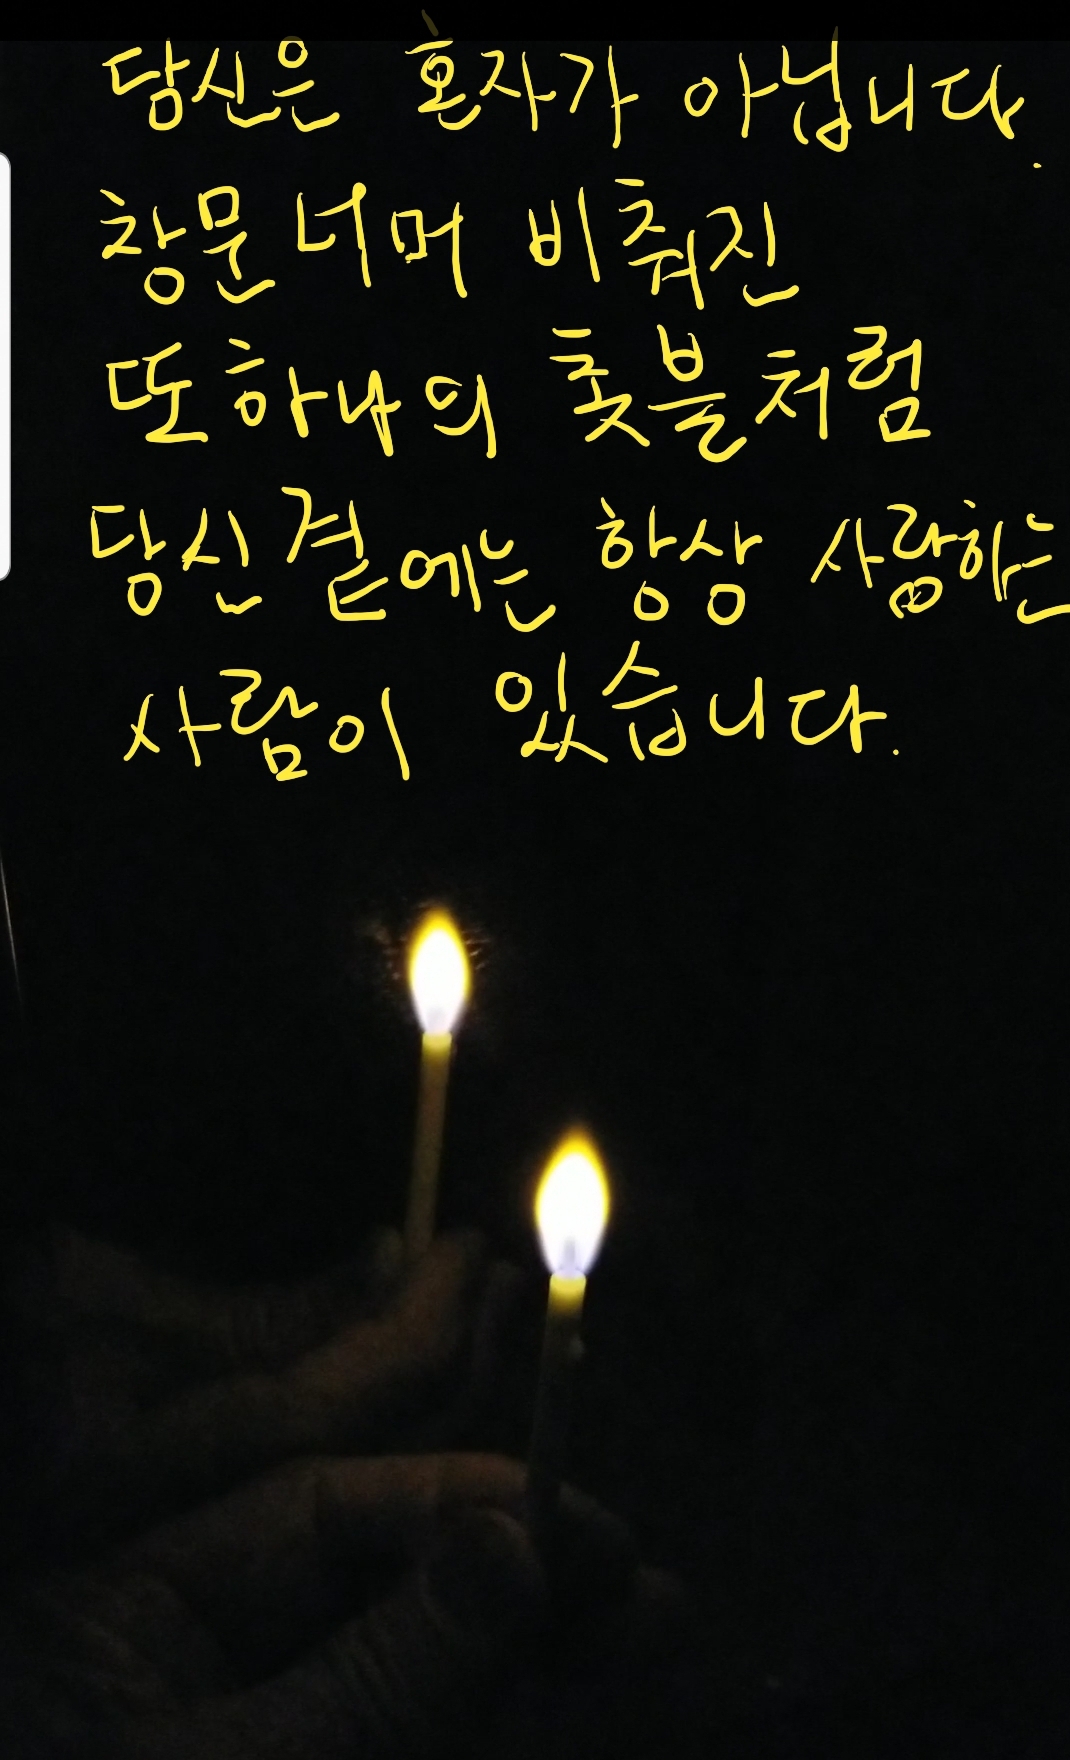 당신은 혼자가 아닙니다.
창문너머 비춰진
또하나의 촛불처럼
당신곁에는 항상 사랑하는
사람이 있습니다.